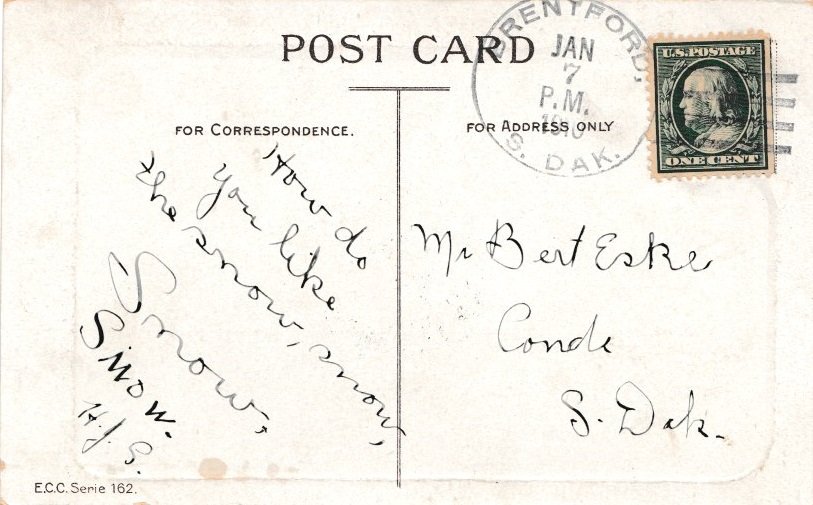 POST CARD
BRENTFORD,
JAN
7
P.M.
1910
S. DAK.
U.S. POSTAGE
ONE CENT
FOR CORRESPONDENCE.
FOR ADDRESS ONLY
How do
you like
the snow, snow,
Snow,
Snow.
H.J.S.
Mr Bert Eske
Conde
S. Dak.
E.C.C. Serie 162.